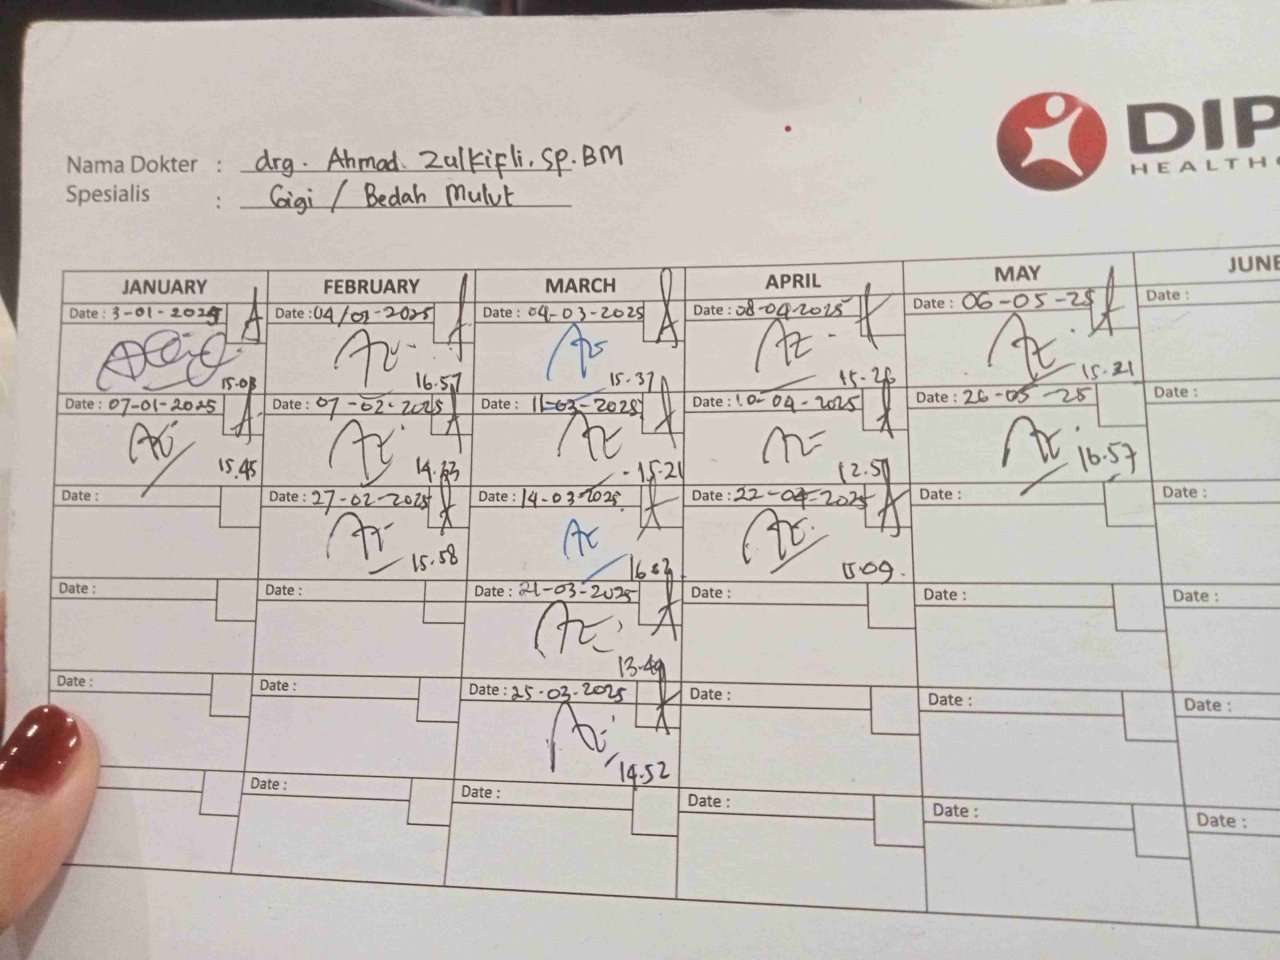 DIP
HEALTHC
Nama Dokter : drg. Ahmad. Zulkifli. Sp. BM
Spesialis : Gigi / Bedah Mulut
JANUARY FEBRUARY MARCH APRIL MAY JUNE
Date : 3-01-2025 Date : 04/02-2025 Date : 04-03-2025 Date : 08-04-2025 Date : 06-05-25 Date :
15.03 16.57 15.37 15.26 15.21
Date : 07-01-2025 Date : 07-02-2025 Date : 11-03-2025 Date : 10-04-2025 Date : 26-05-25 Date :
15.45 14.33 15.21 12.57 16.57
Date : Date : 27-02-2025 Date : 14-03-2025 Date : 22-04-2025 Date : Date :
15.58 15.09.
Date : Date : Date : 21-03-2025 Date : Date : Date :
13.49
Date : Date : Date : 25-03-2025 Date : Date : Date :
14.52
Date : Date : Date : Date : Date :